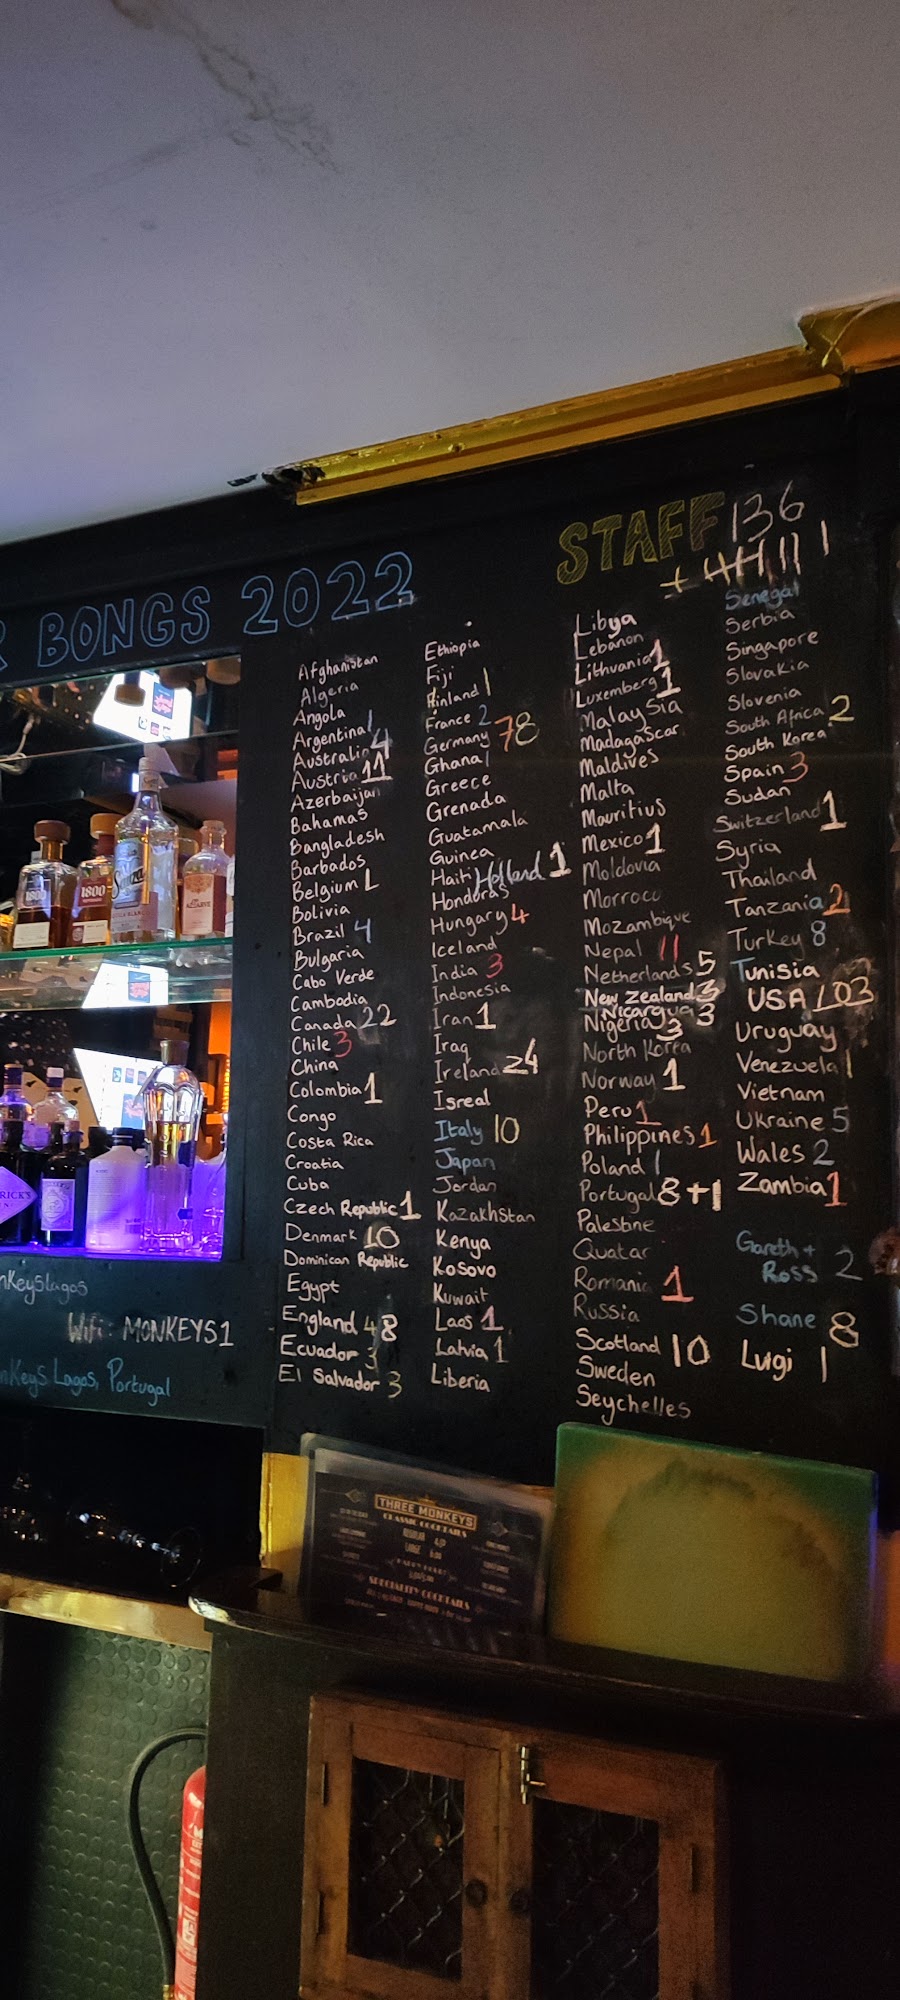 BONGS 2022
STAFF 136
Afghanistan
Algeria
Angola
Argentina 1
Australia 4
Austria 11
Azerbaijan
Bahamas
Bangladesh
Barbados
Belgium 1
Bolivia
Brazil 4
Bulgaria
Cabo Verde
Cambodia
Canada 22
Chile 3
China
Colombia 1
Congo
Costa Rica
Croatia
Cuba
Czech Republic 1
Denmark 10
Dominican Republic
Egypt
England 48
Ecuador 3
El Salvador 3
Ethiopia
Fiji
Finland 1
France 2
Germany 78
Ghana 1
Greece
Grenada
Guatamala
Guinea
Haiti Holland 1
Honduras
Hungary 4
Iceland
India 3
Indonesia
Iran 1
Iraq
Ireland 24
Isreal
Italy 10
Japan
Jordan
Kazakhstan
Kenya
Kosovo
Kuwait
Laos 1
Latvia 1
Liberia
Libya
Lebanon
Lithuania 1
Luxemberg 1
Malaysia
Madagascar
Maldives
Malta
Mauritius
Mexico 1
Moldovia
Morroco
Mozambique
Nepal 11
Netherlands 5
New Zealand 3
Nicargua 3
Nigeria 3
North Korea
Norway 1
Peru 1
Philippines 1
Poland 1
Portugal 8+1
Palestine
Quatar
Romania 1
Russia
Scotland 10
Sweden
Seychelles
Senegal
Serbia
Singapore
Slovakia
Slovenia
South Africa 2
South Korea
Spain 3
Sudan
Switzerland 1
Syria
Thailand
Tanzania 2
Turkey 8
Tunisia
USA 103
Uruguay
Venezuela 1
Vietnam
Ukraine 5
Wales 2
Zambia 1
Gareth + Ross 2
Shane 8
Luigi 1
1800
1800
Wifi: MONKEYS1
Lagos, Portugal
THREE MONKEYS
CLASSIC COCKTAILS
REGULAR
LARGE
HAPPY HOUR
SPECIALITY COCKTAILS